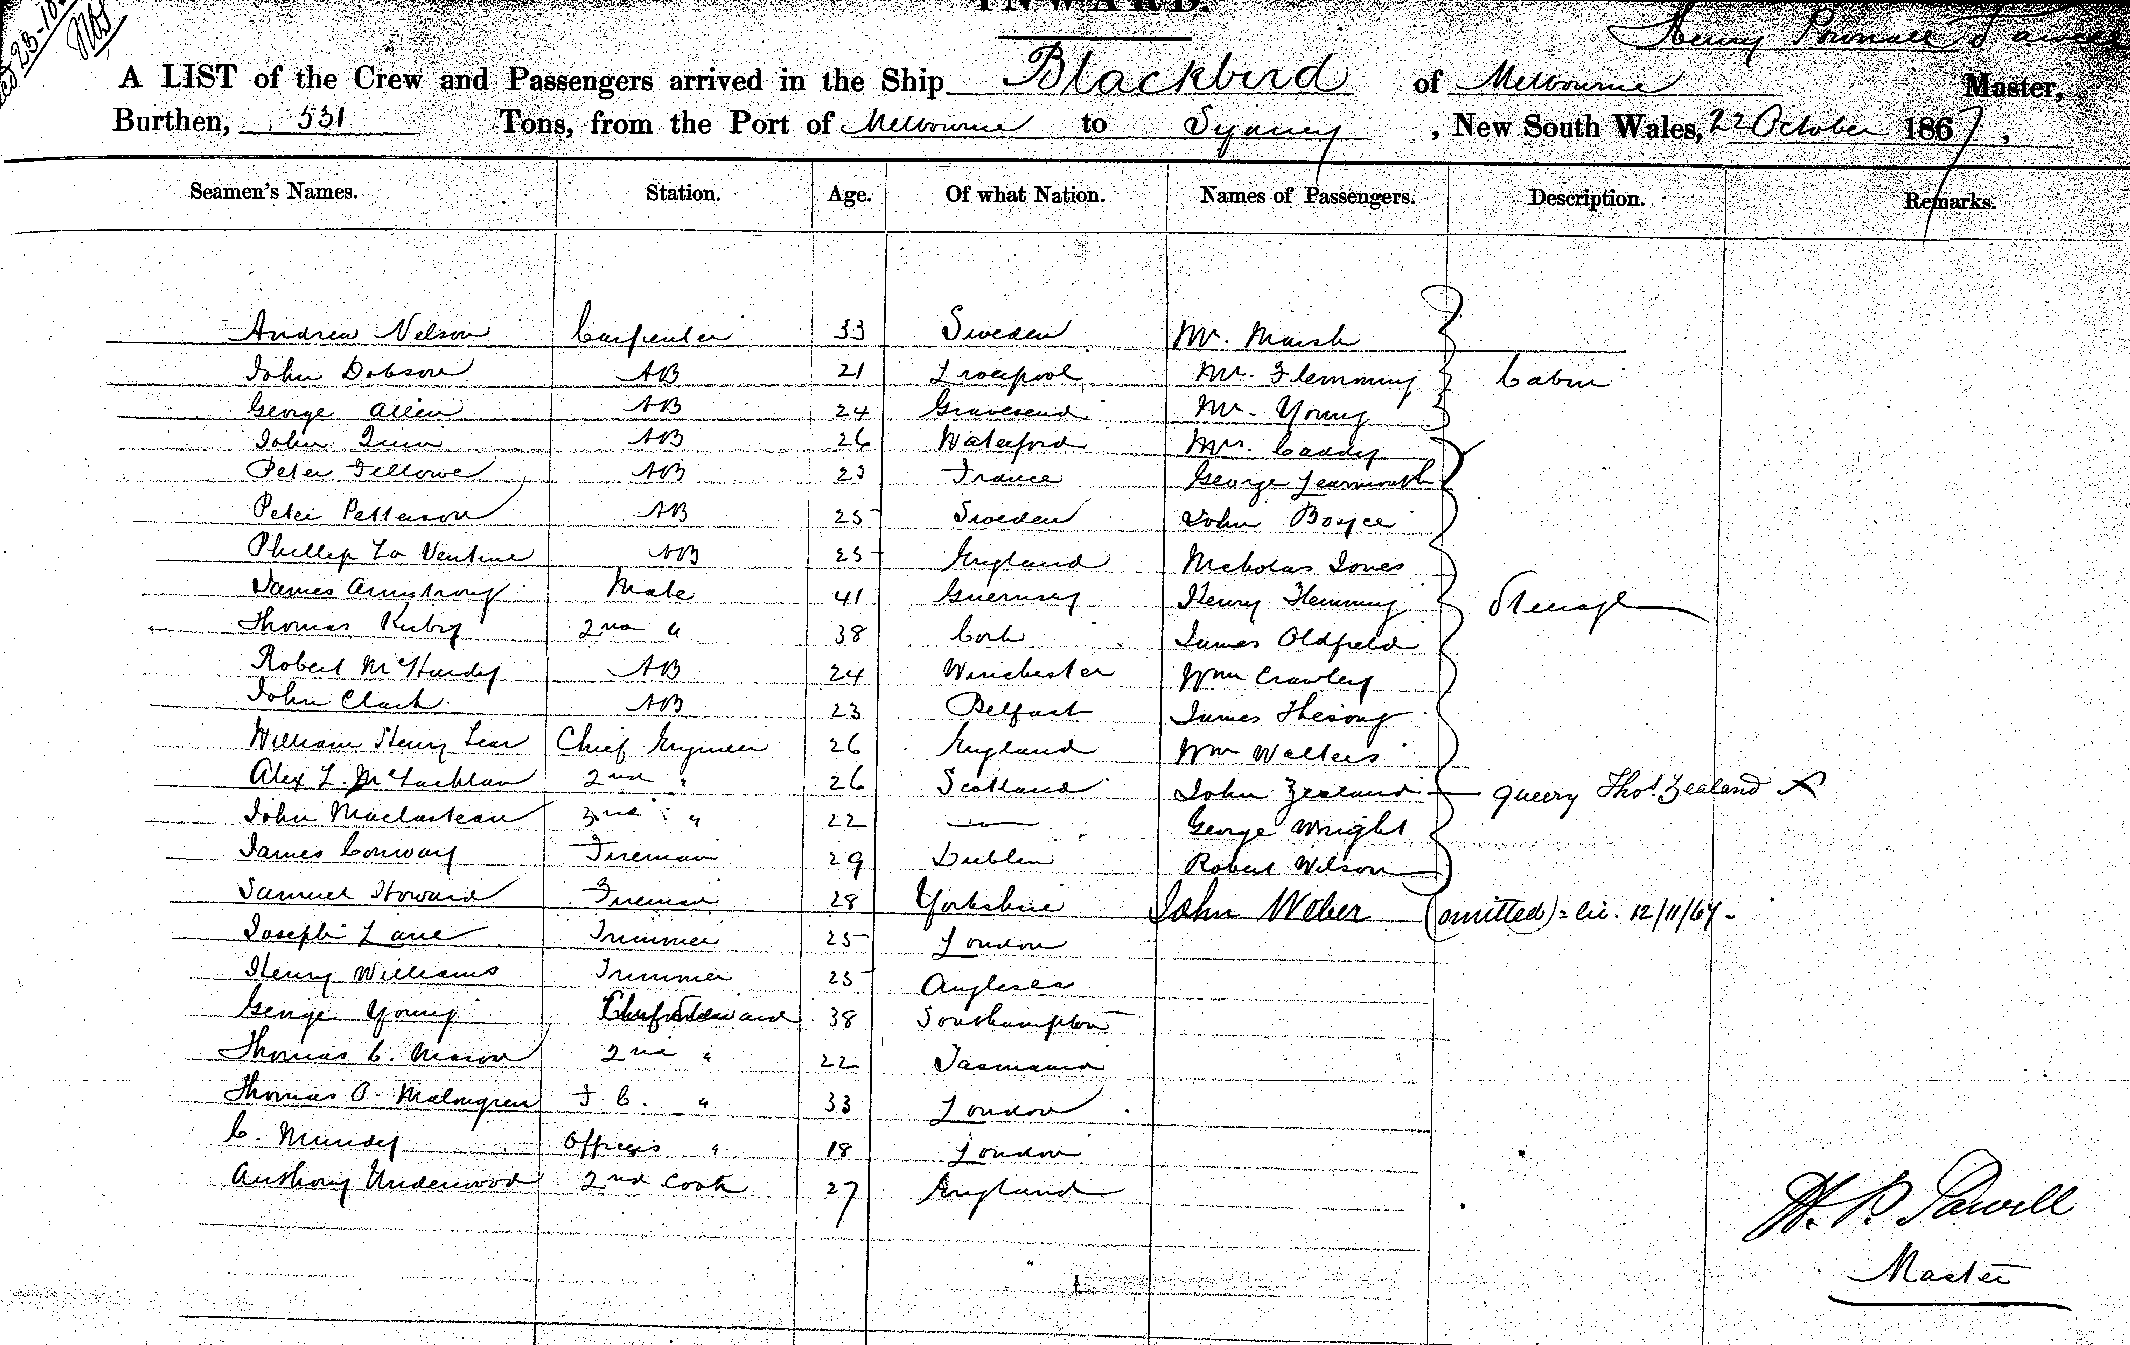 INWARD.
Henry
A LIST of the Crew and Passengers arrived in the Ship Blackbird of Melbourne Master,
Burthen, 531 Tons, from the Port of Melbourne to Sydney, New South Wales, 22 October 1867,
Seamen's Names. Station. Age. Of what Nation. Names of Passengers. Description. Remarks.
Andrew Nelson Carpenter 33 Sweden Mr. Marsh
John Dobson AB 21 Liverpool Mr. Flemming Cabin
George Allen AB 24 Gravesend Mr. Young
John Quin AB 26 Waterford Mrs. Caddy
Peter Fellowe AB 23 France George Learmouth
Peter Petterson AB 25 Sweden John Boyce
Phillip La Ventine AB 25 England Nicholas Jones
James Armstrong Mate 41 Guernsey Henry Flemming Steerage
Thomas Ruby 2nd " 38 Cork James Oldfield
Robert McHardy AB 24 Winchester Wm Crawley
John Clark AB 23 Belfast James
William Henry Lear Chief Engineer 26 England Wm Walters
Alex L. McLachlan 2nd " 26 Scotland John Zealand queery Thos. Zealand X
John 3rd " 22 — George Wright
James Conway Fireman 29 Dublin Robert Wilson
Samuel Howard Fireman 28 Yorkshire John Weber (omitted) = 12/11/67 -
Joseph Lane Trimmer 25 London
Henry Williams Trimmer 25 Anglesea
George Young Chief Steward 38 Southampton
Thomas C. Mason 2nd " 22 Tasmania
Thomas O. Malmgren F C. " 33 London
C. Mundy Officers " 18 London
Anthony Underwood 2nd Cook 27 England
H. P. Sawell
Master